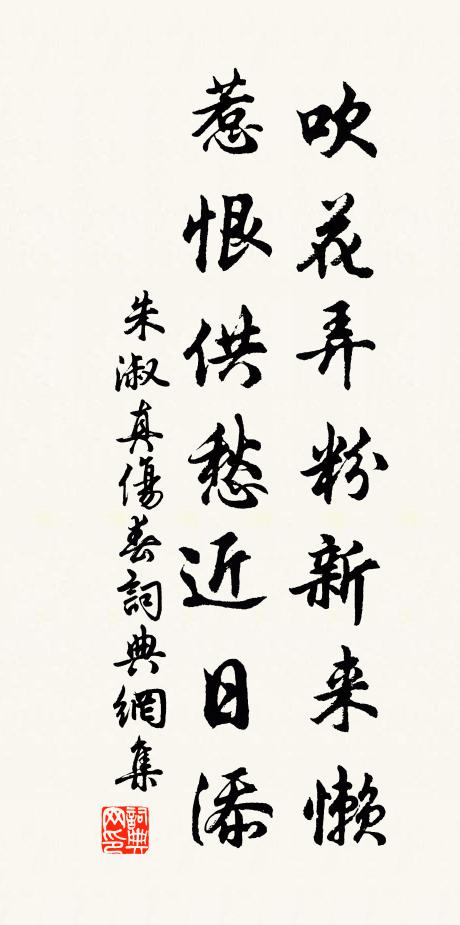 吹花弄粉新来懒
惹恨供愁近日添
朱淑真傷春詞典網集
詞典网印